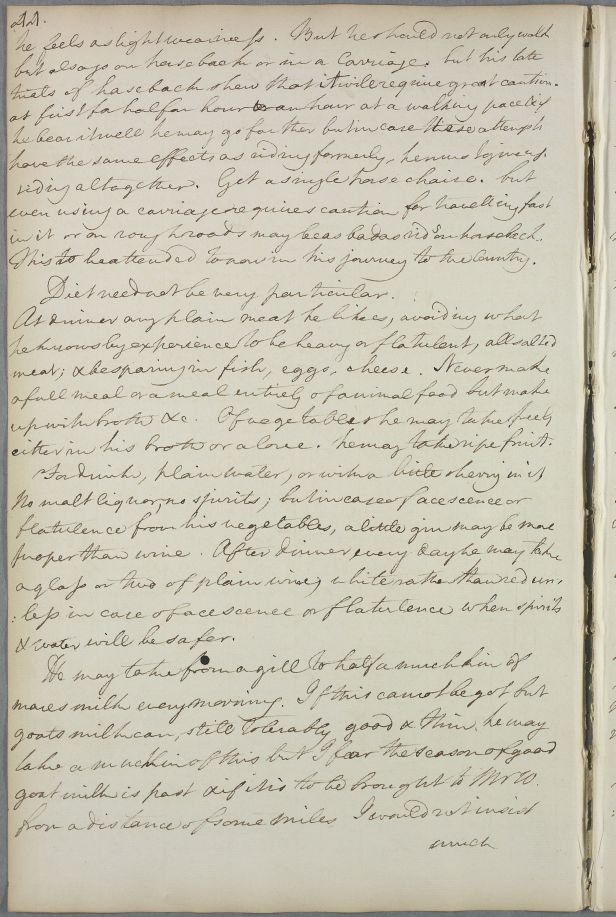 22.
he feels as light weariness. But he should not only walk
but also go on horseback or in a Carriage. but his late
trials of horseback shew that it will require great caution.
at first for half an hour or an hour at a walking pace & if
he bear it well he may go farther but in case these attempts
have the same effects as riding formerly, he must give up
riding altogether. Get a single horse chaise. but
even using a carriage requires caution for travelling fast
in it or on rough roads may be as bad as ridg on horseback.
This to be attended to now in his journey to the Country.
Diet need not be very particular.
At dinner any plain meat he likes, avoiding what
he knows by experience to be heavy or flatulent, all salted
meat; & be sparing in fish, eggs, cheese. Never make
a full meal or a meal entirely of animal food but make
up with broth &c. Of vegetables he may take freely
either in his broth or alone. he may take ripe fruit.
For drink, plain water, or with a little sherry in it
No malt liquor, no spirits; but in case of acescence or
flatulence from his vegetables, a little gin may be more
proper than wine. After dinner every day he may take
a glass or two of plain wine, white rather than red un:
:less in case of acescence or flatulence when spirits
& water will be safer.
He may take from a gill to half a muchkin of
mares milk every morning. If this cannot be got but
goats milk can, still tolerably good & thin he may
take a muchkin of this but I fear the season of good
goat milk is past & if it is to be brought to Mr W.
from a distance of some miles I would not insist
much